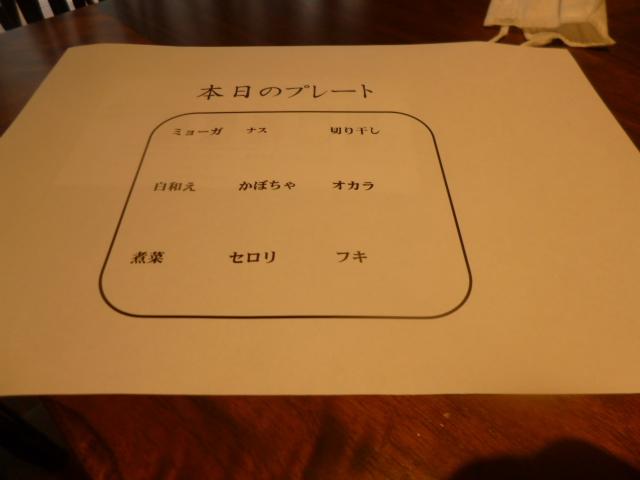 本日のプレート
ミョーガ ナス 切り干し
白和え かぼちゃ オカラ
煮菜 セロリ フキ